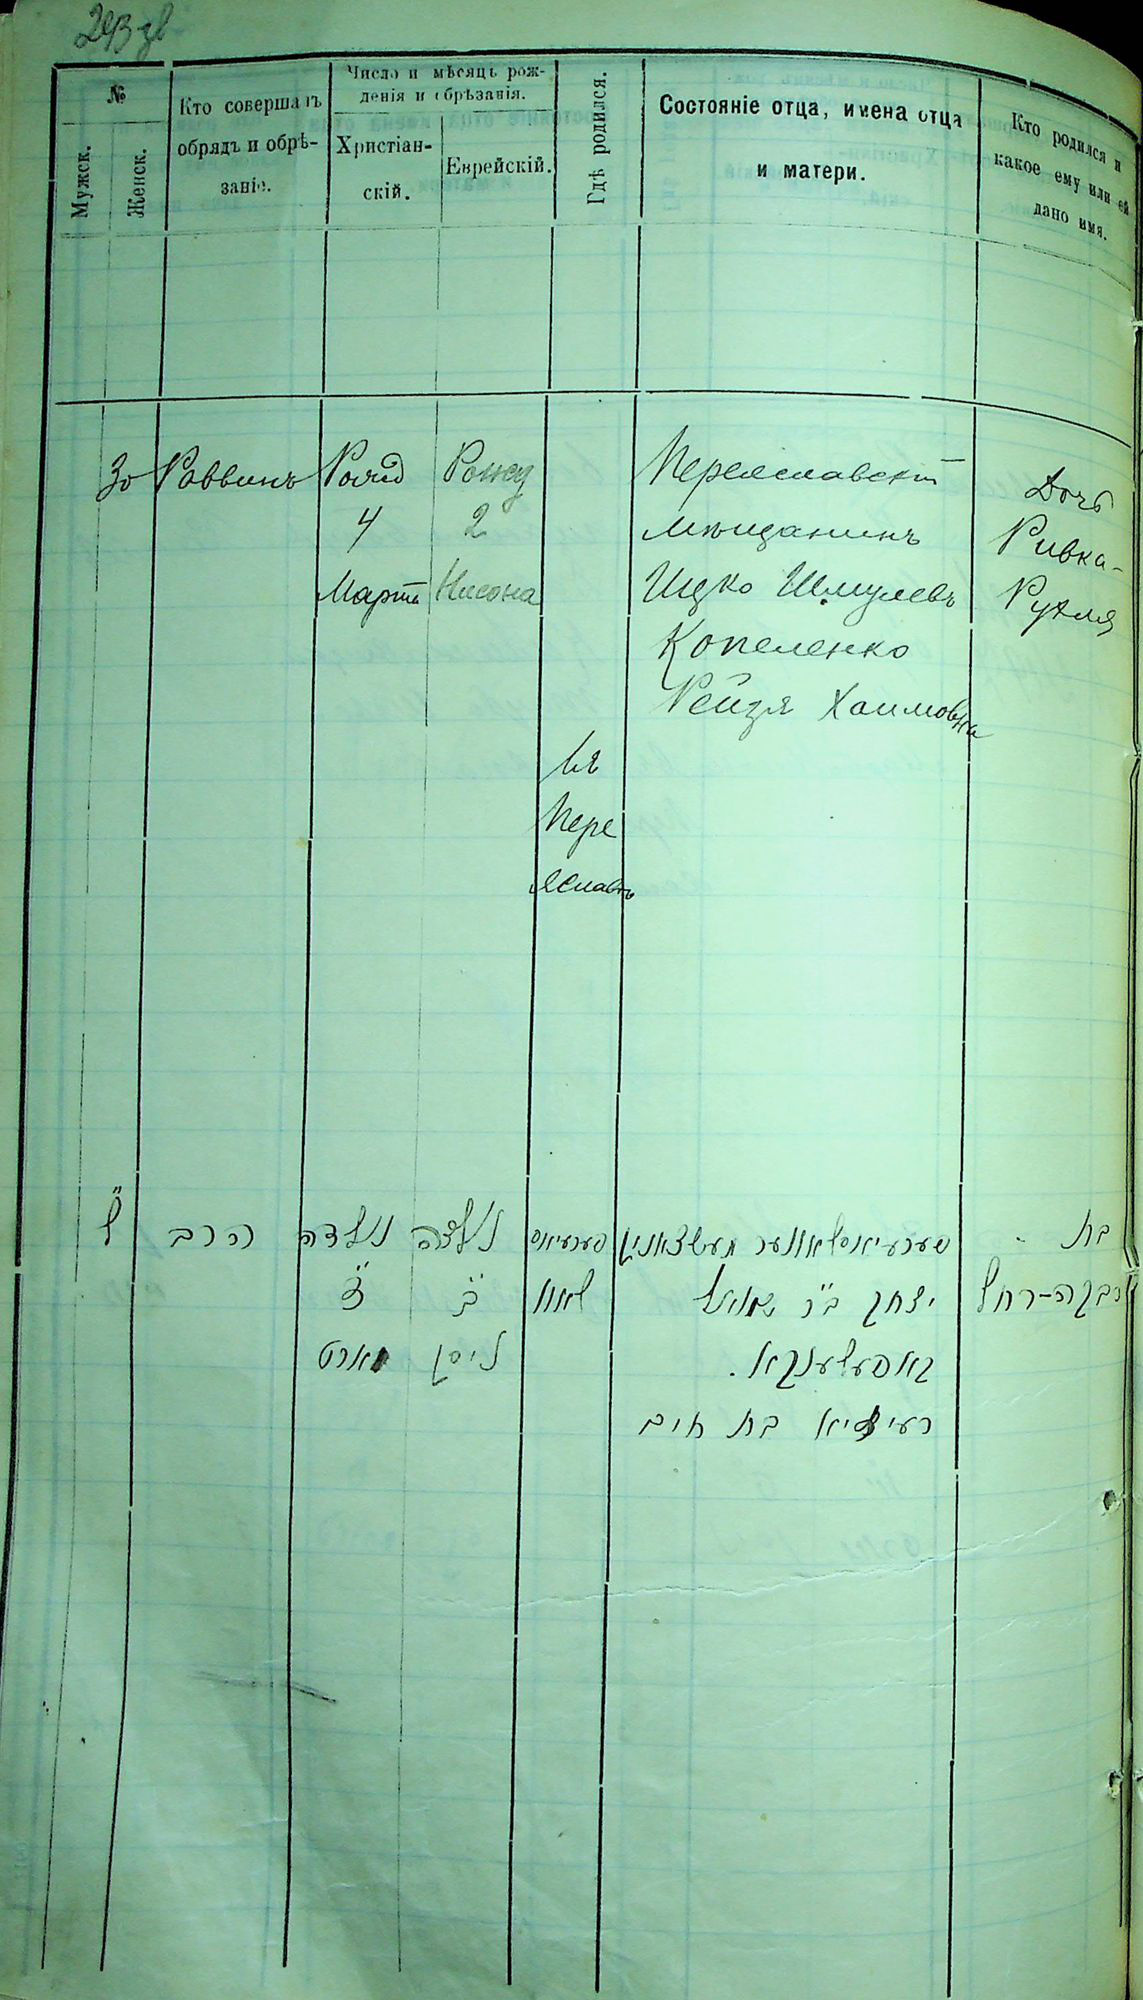 293 зв
№
Мужск.
Женск.
Кто совершалъ
обрядъ и обрѣ-
заніе.
Число и мѣсяцъ рож-
денія и обрѣзанія.
Христіан-
скій.
Еврейскій.
Гдѣ родился.
Состояніе отца, имена отца
и матери.
Кто родился и
какое ему или ей
дано имя.
30
Раввинъ
Рожд
4
Мартъ
Рожд
2
Нисона
въ
Пере
яславъ
Переяславскій
мѣщанинъ
Ицко Шмулевъ
Копеленко
Рейзя Хаимовна
Дочь
Ривка-
Рухля
ל
הרב
נולדה
ד
מארט
נולדה
ב
ניסן
פערעיאס
לאוו
פערעיאסלאווער מעשצאנין
יצחק ב״ר שמואל
קאפעלענקא.
רעיזיא בת חיים
בת
רבקה-רחל